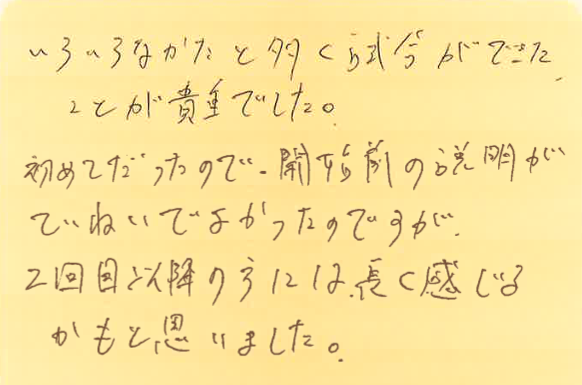 いろいろなかたと多く試合ができた
ことが貴重でした。
初めてだったので、開始前の説明が
ていねいでよかったのですが、
2回目以降の方には、長く感じる
かもと思いました。